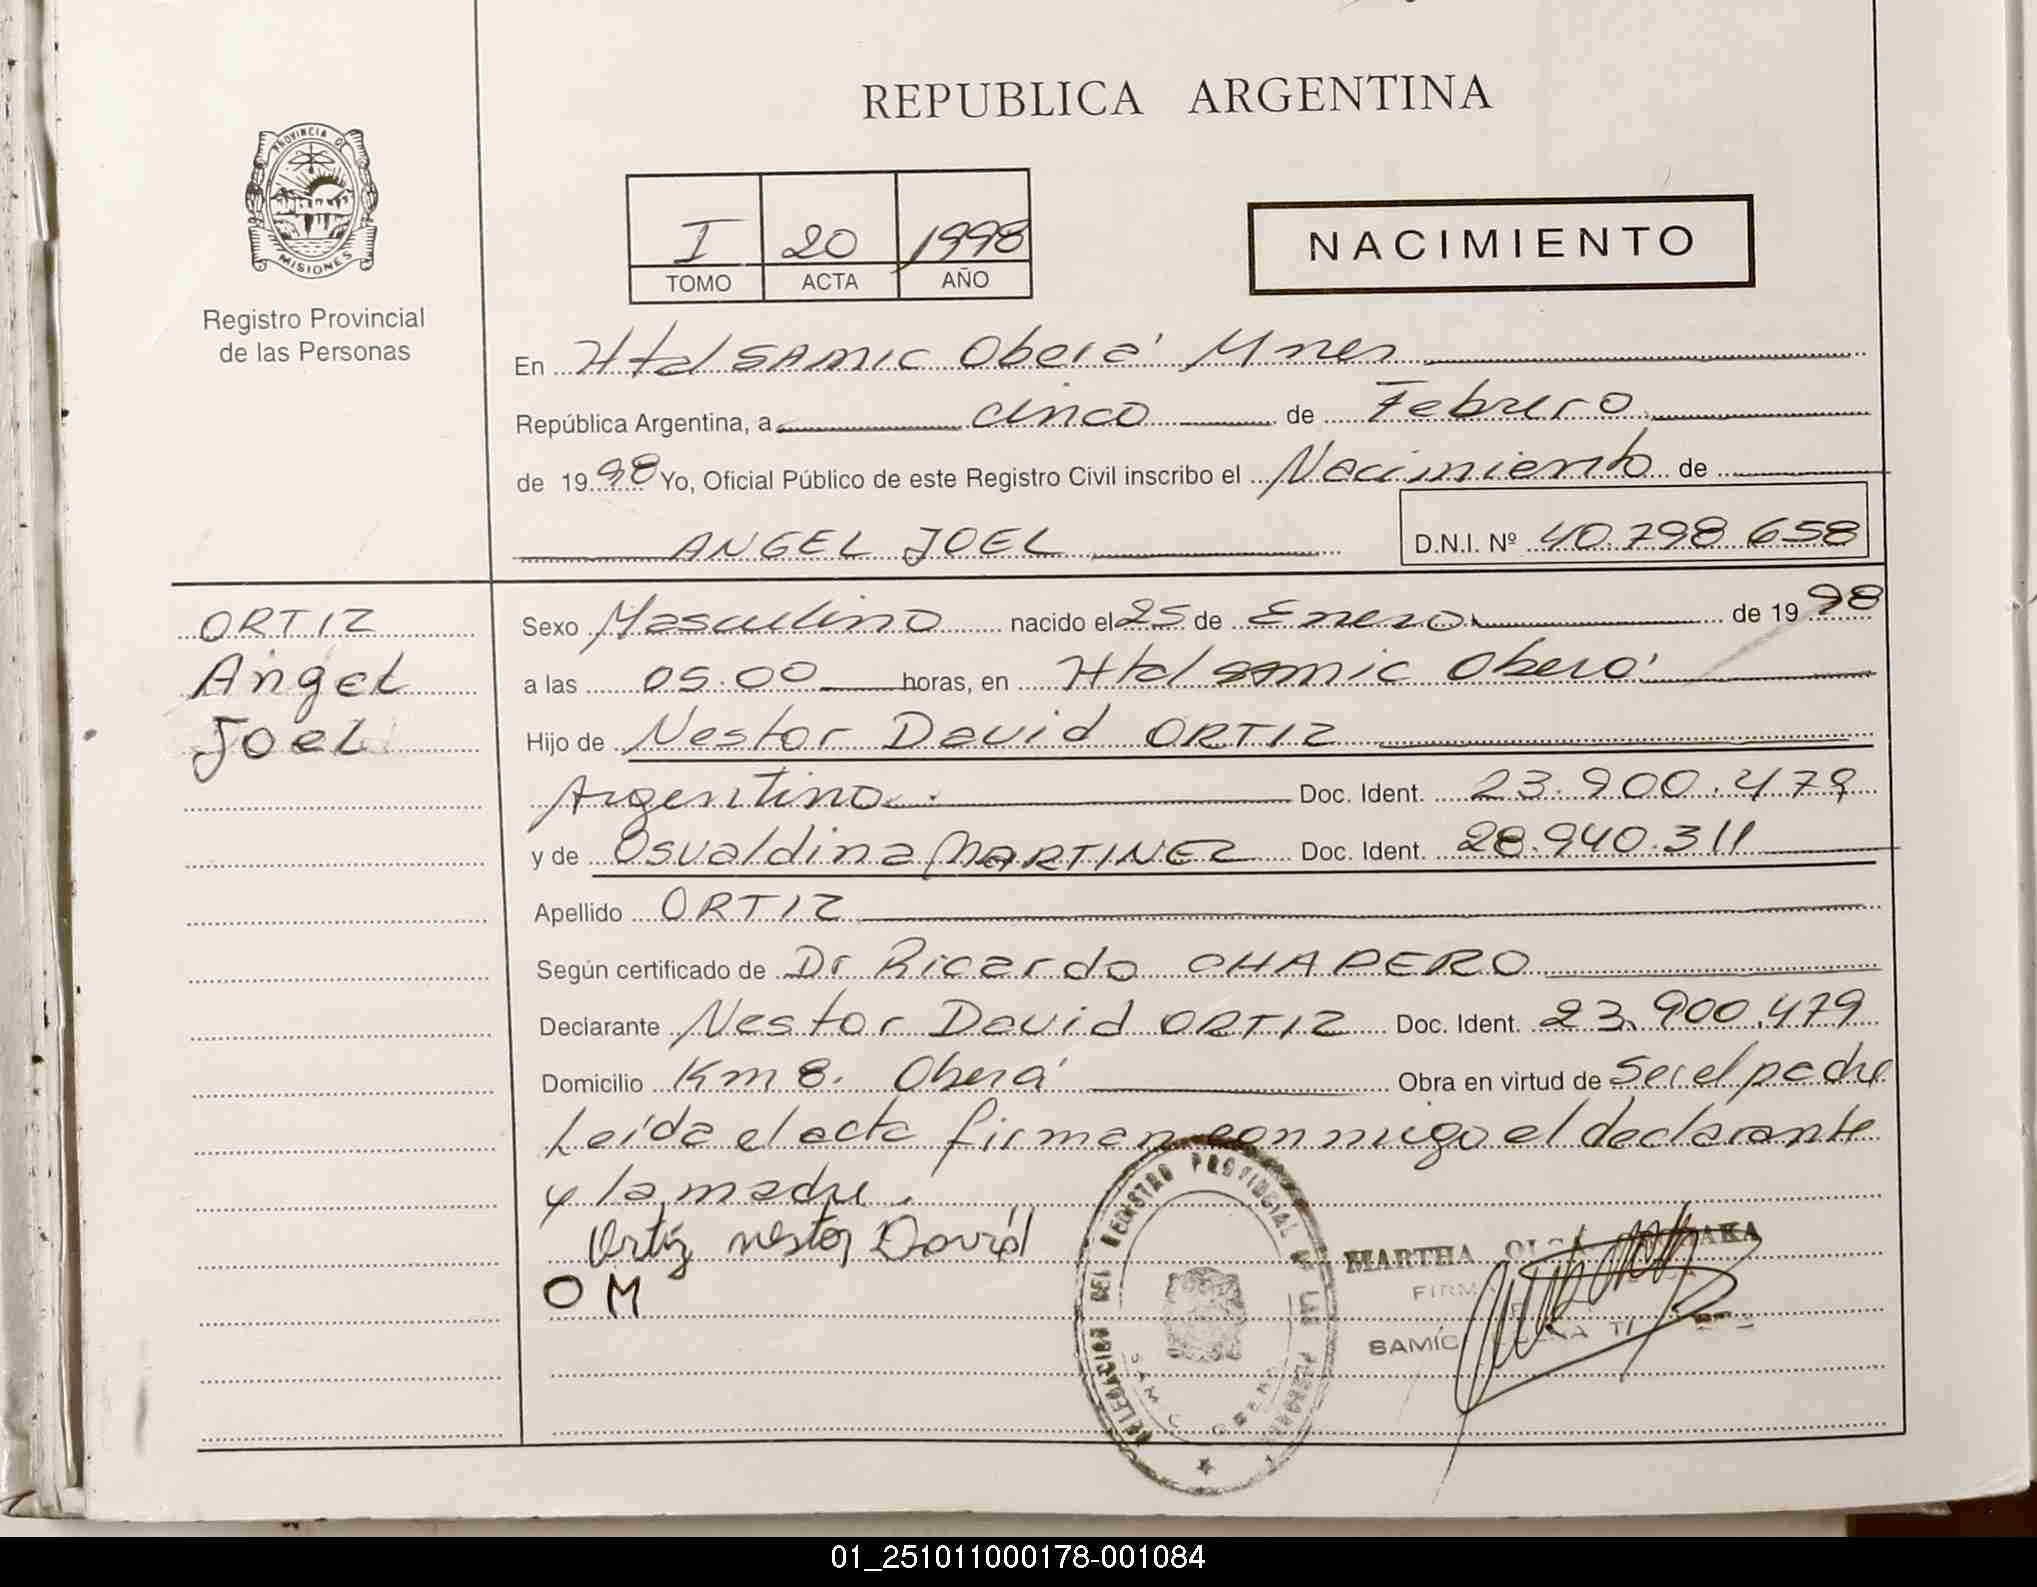 REPUBLICA ARGENTINA
PROVINCIA DE
MISIONES
Registro Provincial
de las Personas
I 20 1998
TOMO ACTA AÑO
NACIMIENTO
En Htal SAMIC Oberá Mnes
República Argentina, a cinco de Febrero
de 1998 Yo, Oficial Público de este Registro Civil inscribo el Nacimiento de
ANGEL JOEL D.N.I. Nº 40.798.658
ORTIZ
Angel
Joel
Sexo Masculino nacido el 25 de Enero de 1998
a las 05.00 horas, en Htal samic Oberá
Hijo de Nestor David ORTIZ
Argentino. Doc. Ident. 23.900.479
y de Osvaldina MARTINEZ Doc. Ident. 28.940.311
Apellido ORTIZ
Según certificado de Dr Ricardo CHAPERO
Declarante Nestor David ORTIZ Doc. Ident. 23.900.479
Domicilio Km 8. Oberá Obra en virtud de Ser el padre
Leída el acta firman conmigo el declarante
y la madre.
Ortiz nestor David
O M
DELEGACION DEL REGISTRO PROVINCIAL DE LAS PERSONAS
SAMIC OBERA
MARTHA OLGA
FIRMA
SAMIC
01_251011000178-001084